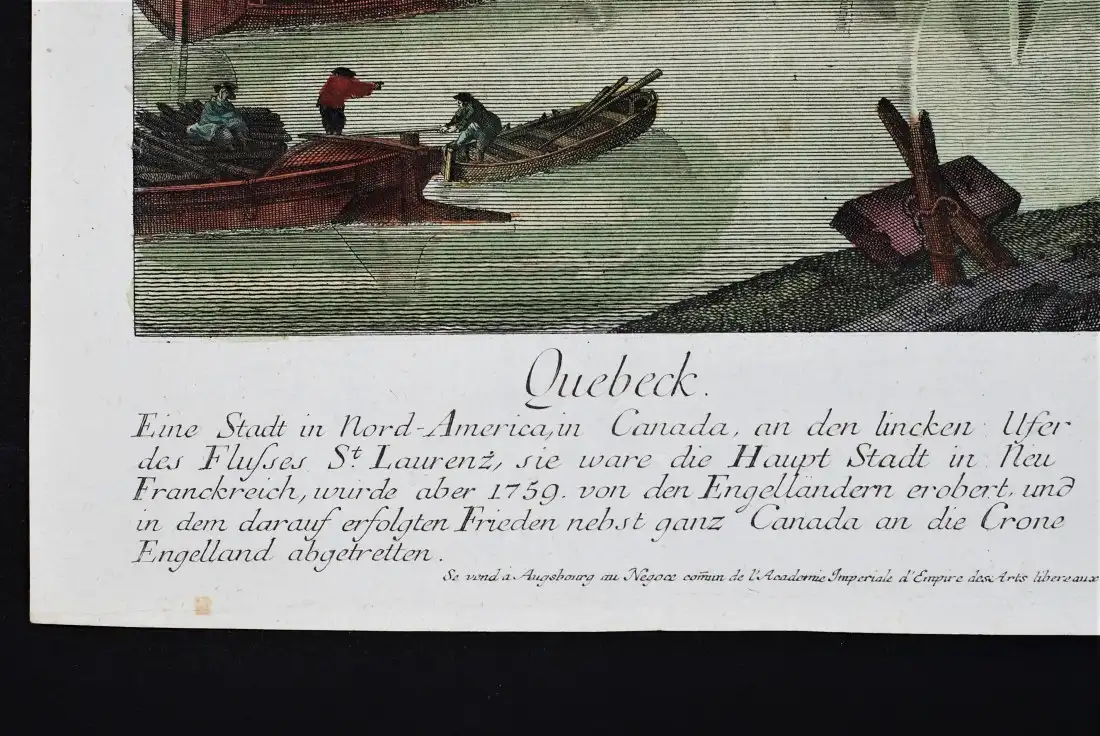 Quebeck.
Eine Stadt in Nord-America, in Canada, an den lincken Ufer
des Flusses St. Laurenz, sie ware die Haupt Stadt in Neu
Franckreich, wurde aber 1759. von den Engelländern erobert, und
in dem darauf erfolgten Frieden nebst ganz Canada an die Crone
Engelland abgetretten.
Se vend a Augsbourg au Negoce com̄un de l'Academie Imperiale d'Empire des Arts libereaux